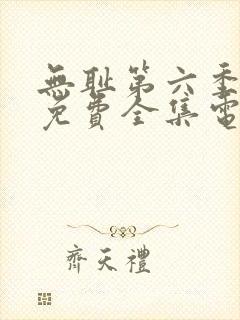 無耻第六季
免費全集電
齊天禮